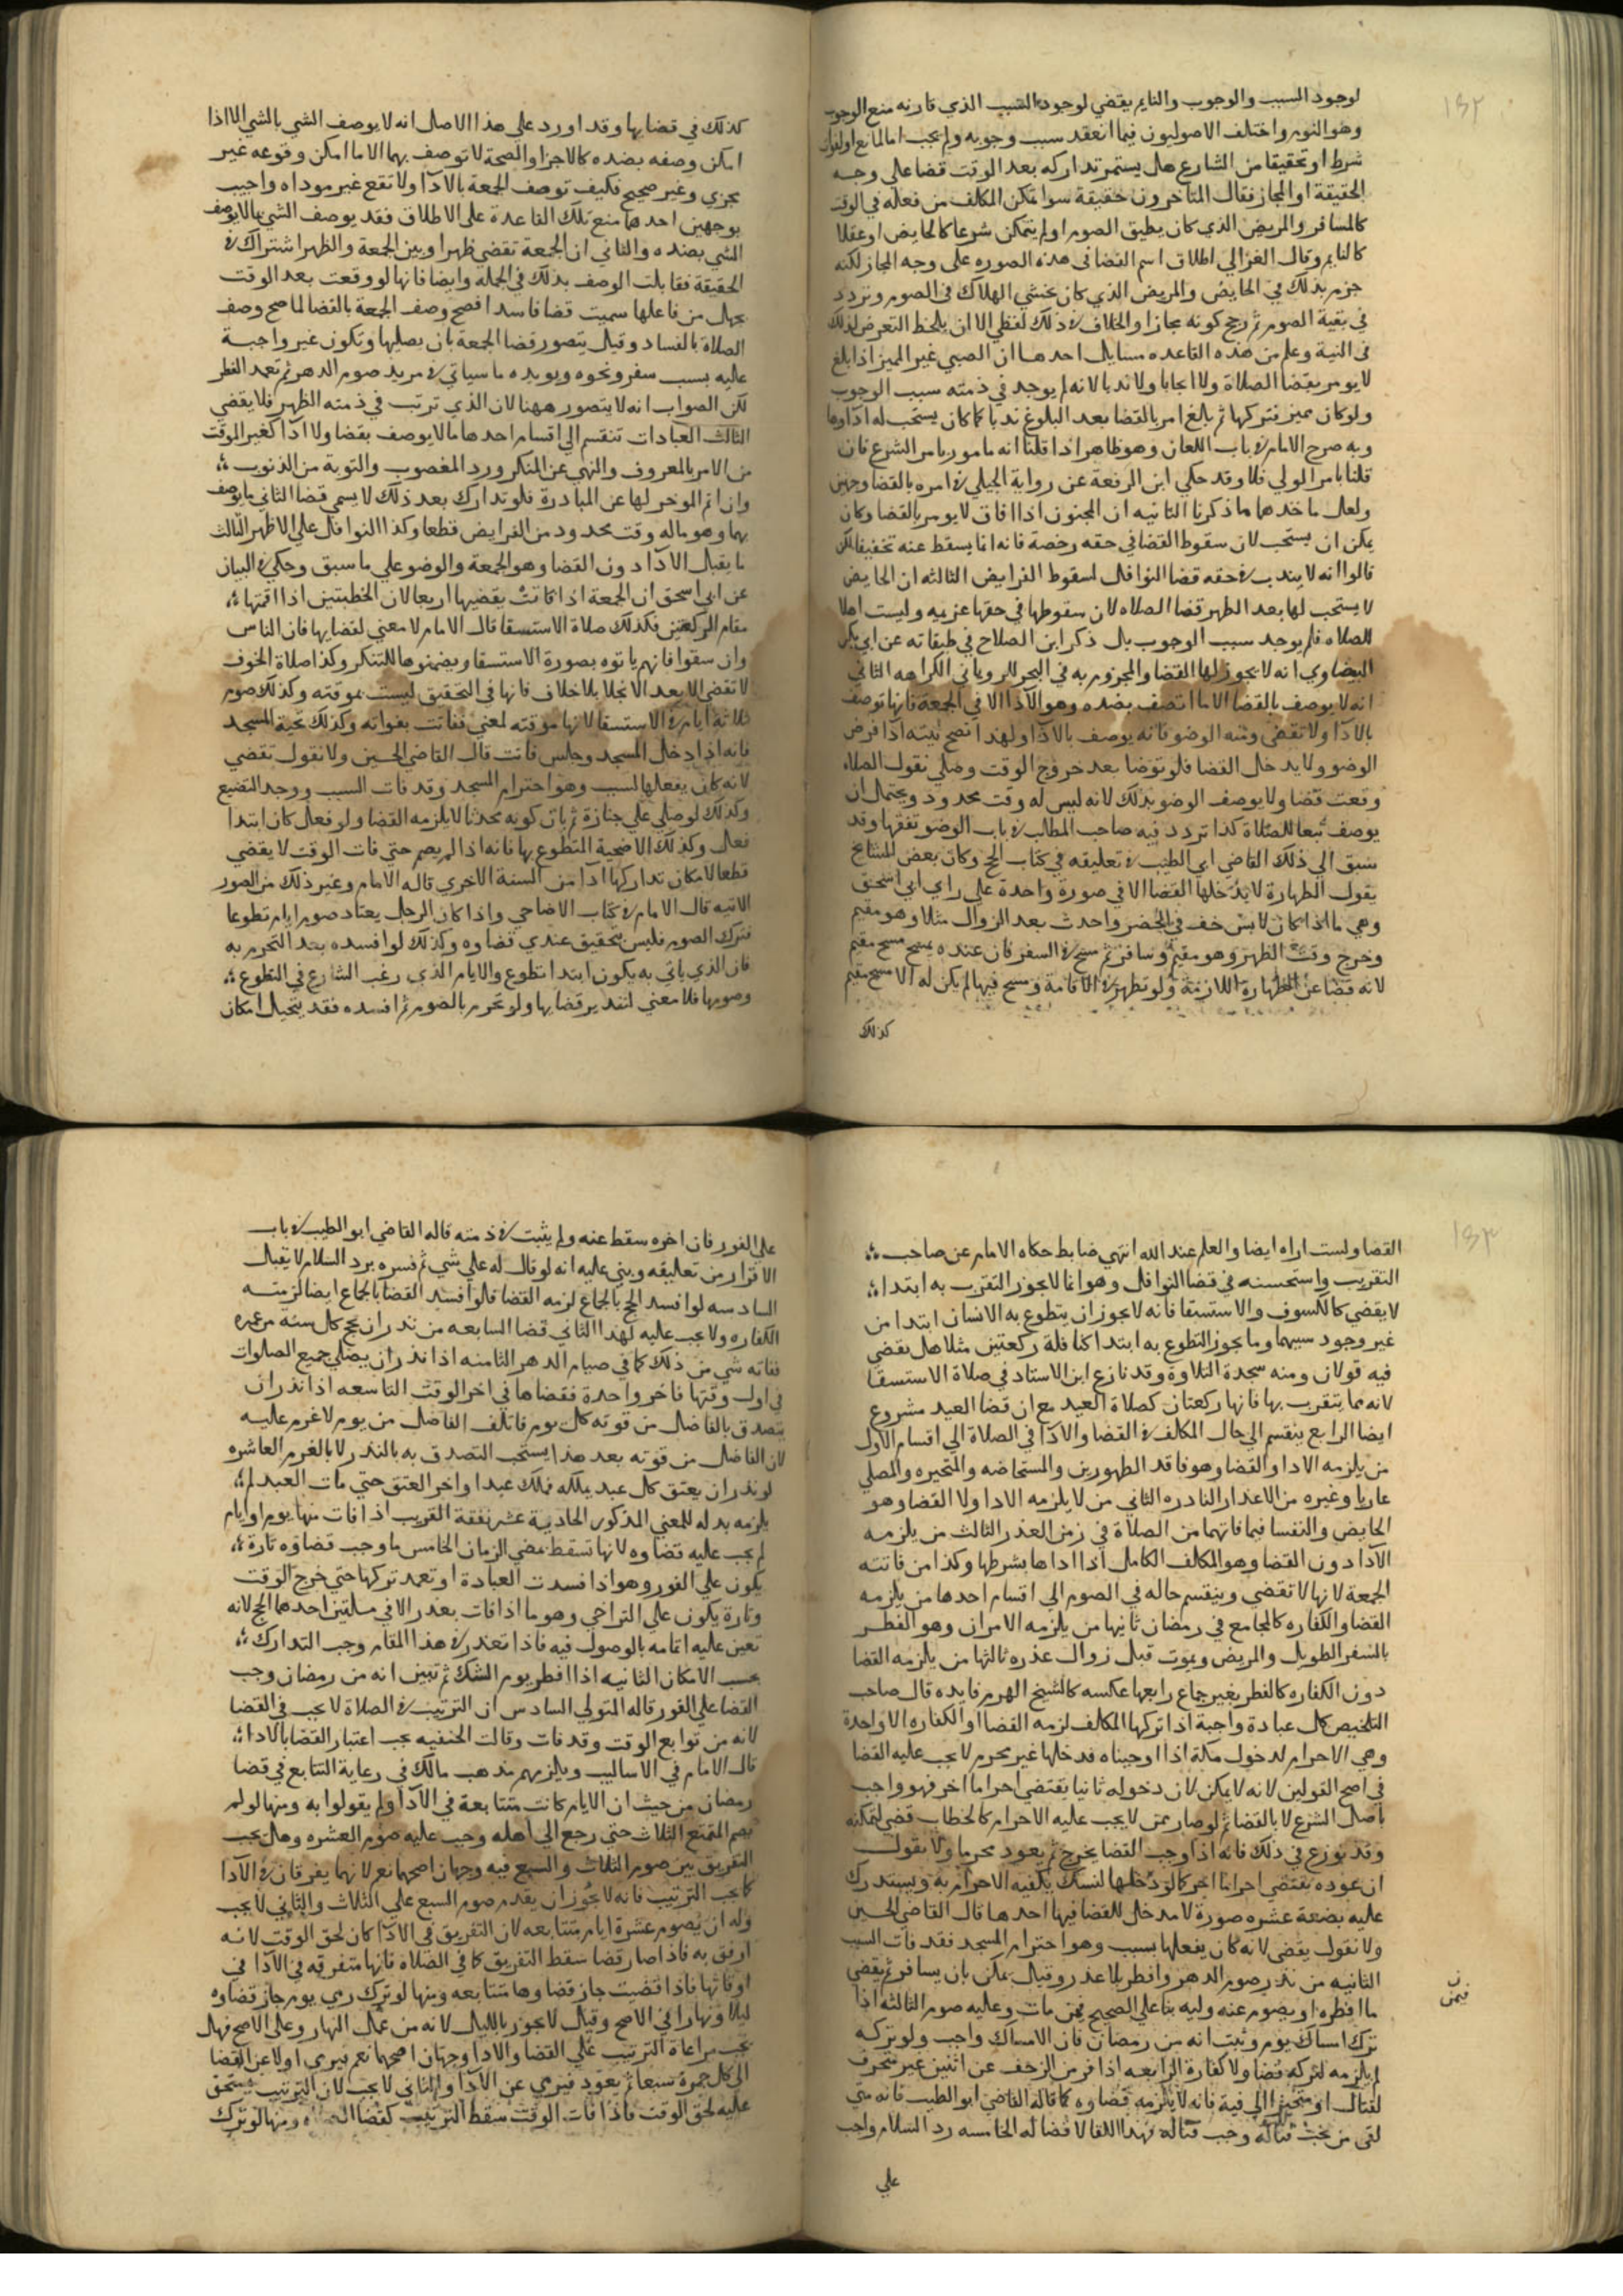 ١٣٢
لوجود السبب والوجوب والنايم يقضي لوجود السبب الذي قارنه منع الوجوب
وهو النوم واختلف الاصوليون فيما انعقد سبب وجوبه ولم يجب اما لمانع او لفوات
شرط او تحقيقا من الشارع هل يستمر تداركه بعد الوقت قضا على وجه
الحقيقة او المجاز فقال المتاخرون حقيقة سوا تمكن المكلف من فعله في الوقت
كالمسافر والمريض الذي كان يطيق الصوم او لم يتمكن شرعا كالحايض او عقلا
كالنايم وقال الغزالي اطلاق اسم القضا في هذه الصوره على وجه المجاز لكنه
جزم بذلك في الحايض والمريض الذي كان يخشي الهلاك في الصوم وتردد
في بقية الصور ثم رجح كونه مجازا والخلاف في ذلك لفظي الا ان يلحظ التعرض لذلك
في النية وعلم من هذه القاعده مسايل احدها ان الصبي غير المميز اذا بلغ
لا يومر بقضا الصلاة ولا ايجابا ولا ندبا لانه لم يوجد في ذمته سبب الوجوب
ولو كان مميز فتركها ثم بالغ امر بالقضا بعد البلوغ ندبا كما كان يستحب له اداوها
وبه صرح الامام في باب اللعان وهو ظاهر اذا قلنا انه مامور بامر الشرع فان
قلنا بامر الولي فلا وقد حكي ابن الرفعة عن رواية الجيلي في امره بالقضا وجهين
ولعل ماخذهما ما ذكرنا الثانيه ان المجنون اذا افاق لا يومر بالقضا وكان
يمكن ان يستحب لان سقوط القضا في حقه رخصة فانه انما يسقط عنه تخفيفا لكن
قالوا انه لا يندب في حقه قضا النوافل لسقوط الفرايض الثالثه ان الحايض
لا يستحب لها بعد الطهر قضا الصلاه لان سقوطها في حقها عزيمه وليست اهلا
للصلاه فلم يوجد سبب الوجوب بل ذكر ابن الصلاح في طبقاته عن ابي بكر
البيضاوي انه لا يجوز لها القضا والمجزوم به في البحر للروياني الكراهه الثاني
انه لا يوصف بالقضا الا ما اتصف بضده وهو الاداء الا في الجمعة فانها توصف
بالادا ولا تقضى ومنه الوضو فانه يوصف بالادا ولهذا تصح نيته ادا فرض
الوضو ولا يدخل القضا فلو توضا بعد خروج الوقت وصلي نقول الصلاه
وقعت قضا ولا يوصف الوضو بذلك لانه ليس له وقت محدود ويحتمل ان
يوصف تبعا للصلاة كذا تردد فيه صاحب المطالب في باب الوضو تفقها وقد
سبق الي ذلك القاضي ابي الطيب في تعليقه في كتاب الحج وكان بعض المشايخ
يقول الطهارة لا يدخلها القضا الا في صورة واحدة علي راي ابي اسحق
وهي ما اذا كان لابس خف في الحضر واحدث بعد الزوال مثلا وهو مقيم
وخرج وقت الظهر وهو مقيم وسافر ثم مسح في السفر فان عنده يمسح مسح مقيم
لانه قضا عن الطهارة اللازمة ولو تطهر في الاقامة ومسح فيها لم يكن له الا مسح مقيم
كذلك
كذلك في قضايها وقد اورد على هذا الاصل انه لا يوصف الشي بالشي الا اذا
امكن وصفه بضده كالاجزا والصحة لا توصف بهما الا ما امكن وقوعه غير
مجزي وغير صحيح فكيف توصف الجمعة بالادا ولا تقع غير موداه واجيب
بوجهين احدهما منع تلك القاعدة على الاطلاق فقد يوصف الشي بما لا يوصف
الشي بضده والثاني ان الجمعة تقضي ظهرا وبين الجمعة والظهر اشتراك في
الحقيقة فقابلت الوصف بذلك في الجملة وايضا فانها لو وقعت بعد الوقت
بجهل من فاعلها سميت قضا فاسدا فصح وصف الجمعة بالقضا لما صح وصف
الصلاة بالفساد وقيل يتصور قضا الجمعة بان يصلها وتكون غير واجبة
عليه بسبب سفر ونحوه ويويده ما سياتي في مريد صوم الدهر ثم تعمد الفطر
لكن الصواب انه لا يتصور ههنا لان الذي ترتب في ذمته الظهر فلا يقضي
الثالث العبادات تنقسم الي اقسام احدها ما لا يوصف بقضا ولا ادا كغير الموقت
من الامر بالمعروف والنهي عن المنكر ورد المغصوب والتوبة من الذنوب
وان اثم الموخر لها عن المبادرة فلو تدارك بعد ذلك لا يسمي قضا الثاني ما يوصف
بهما وهو ماله وقت محدود من الفرايض قطعا وكذا النوافل علي الاظهر الثالث
ما يقبل الادا دون القضا وهو الجمعة والوضو علي ما سبق وحكي في البيان
عن ابي اسحق ان الجمعة اذا فاتت يقضيها اربعا لان الخطبتين اذا اقمتها
مقام الركعتين فكذلك صلاة الاستسقا قال الامام لا معني لقضايها فان الناس
وان سقوا فانهم ياتوه بصورة الاستسقا ويضمنوها للتنكر وكذا صلاة الخوف
لا تقضى الا بعد الانجلا بلا خلاف فانها في التحقيق ليست موقته وكذلك صوم
ثلاثة ايام في الاستسقا لانها موقته لمعني ففاتت بفواته وكذلك تحية المسجد
فانه اذا دخل المسجد وجلس فاتت قال القاضي الحسين ولا نقول تقضي
لانه كان يفعلها لسبب وهو احترام المسجد وقد فات السبب ووجد التضيع
وكذلك لو صلي علي جنازة ثم بان كونه محدثا لا يلزمه القضا ولو فعل كان ابتدا
فعل وكذلك الاضحية المتطوع بها فانه اذا لم يصم حتي فات الوقت لا يقضي
قطعا لامكان تداركها ادا من السنة الاخري قاله الامام وغير ذلك من الصور
الاتيه قال الامام في كتاب الاضاحي واذا كان الرجل يعتاد صوم ايام تطوعا
فترك الصوم فليس بتحقيق عندي قضاوه وكذلك لو افسده بعد التحرم به
فان الذي ياتي به يكون ابتدا تطوع والايام الذي رغب الشارع في التطوع
وصومها فلا معني لتقدير قضايها ولو تحرم بالصوم ثم افسده فقد يتخيل امكان
١٣٣
القضا ولست اراه ايضا والعلم عند الله انتهي ضابط حكاه الامام عن صاحب
التقريب واستحسنه في قضا النوافل وهو انما لا يجوز التقرب به ابتدا
لا يقضي كالكسوف والاستسقا فانه لا يجوز ان يتطوع به الانسان ابتدا من
غير وجود سببهما وما يجوز التطوع به ابتدا كنافلة ركعتين مثلا هل يقضي
فيه قولان ومنه سجدة التلاوة وقد نازع ابن الاستاد في صلاة الاستسقا
لانه مما يتقرب بها فانها ركعتان كصلاة العيد مع ان قضا العيد مشروع
ايضا الرابع ينقسم الي حال المكلف في القضا والادا في الصلاة الي اقسام الاول
من يلزمه الادا والقضا وهو فاقد الطهورين والمستحاضه والمتحيره والمصلي
عاريا وغيره من الاعذار النادره الثاني من لا يلزمه الادا ولا القضا وهو
الحايض والنفسا فيما فاتهما من الصلاة في زمن العذر الثالث من يلزمه
الادا دون القضا وهو المكلف الكامل اذا اداها بشرطها وكذا من فاتته
الجمعة لانها لا تقضي وينقسم حاله في الصوم الي اقسام احدها من يلزمه
القضا والكفاره كالمجامع في رمضان ثانيها من يلزمه الامران وهو الفطر
بالسفر الطويل والمريض ويموت قبل زوال عذره ثالثها من يلزمه القضا
دون الكفاره كالفطر بغير جماع رابعها عكسه كالشيخ الهرم فايده قال صاحب
التلخيص كل عبادة واجبة اذا تركها المكلف لزمه القضا او الكفاره الا واحدة
وهي الاحرام لدخول مكة اذا اوجبناه فدخلها غير محرم لا يجب عليه القضا
في اصح القولين لانه لا يمكن لان دخوله ثانيا يقتضي احراما اخر فهو واجب
باصل الشرع لا بالقضا ثم لو صار ممن لا يجب عليه الاحرام كالحطاب قضي لتمكنه
وقد نوزع في ذلك فانه اذا وجب القضا يخرج ثم يعود محرما ولا نقول
ان عوده يقتضي احراما اخر كما لو دخلها لنسك يكفيه الاحرام به ويستدرك
عليه بضعة عشره صورة لا مدخل للقضا فيها احدها قال القاضي الحسين
ولا نقول يقضى لانه كان يفعلها بسبب وهو احترام المسجد فقد فات السبب
الثانيه من نذر صوم الدهر وافطر بلا عذر وقيل يمكن بان يسافر ثم يقضي
ما افطره او يصوم عنه وليه بنا على الصحيح فيمن مات وعليه صوم الثالثه اذا
ترك امساك يوم وثبت انه من رمضان فان الامساك واجب ولو تركه
لم يلزمه لتركه قضا ولا كفارة الرابعه اذا فر من الزحف عن اثنين غير متحرف
لقتال او متحيزا الي فية فانه لا يلزمه قضاوه كما قاله القاضي ابو الطيب فانه متي
لقي من يجب قتاله وجب قتاله بهذا اللقا لا قضا له الخامسه رد السلام واجب
ن
فيمن
علي
علي الفور فان اخره سقط عنه ولم يثبت في ذمته قاله القاضي ابو الطيب في باب
الاقرار من تعليقه وبني عليه انه لو قال له علي شي ثم فسره برد السلام لا يقبل
السادسه لو افسد الحج بالجماع لزمه القضا فلو افسد القضا بالجماع ايضا لزمته
الكفاره ولا يجب عليه لهذا الثاني قضا السابعه من نذر ان يحج كل سنه من عمره
ففاته شي من ذلك كما في صيام الدهر الثامنه اذا نذر ان يصلي جميع الصلوات
في اول وقتها فاخر واحدة فقضاها في اخر الوقت التاسعه اذا نذر ان
يتصدق بالفاضل من قوته كل يوم فاتلف الفاضل من يوم لا غرم عليه
لان الفاضل من قوته بعد هذا يستحب التصدق به بالنذر لا بالغرم العاشره
لو نذر ان يعتق كل عبد يملكه فملك عبدا واخر العتق حتي مات العبد لم
يلزمه بدله للمعني المذكور الحادية عشر نفقة القريب اذا فات منها يوم او ايام
لم يجب عليه قضاوه لانها تسقط بمضي الزمان الخامس ما وجب قضاوه تارة
يكون علي الفور وهو اذا فسدت العبادة او تعمد تركها حتي خرج الوقت
وتارة يكون علي التراخي وهو ما اذا فات بعذر الا في مسلتين احدهما الحج لانه
تعين عليه اتمامه بالوصول فيه فاذا تعذر في هذا المقام وجب التدارك
بحسب الامكان الثانيه اذا افطر يوم الشك ثم تبين انه من رمضان وجب
القضا على الفور قاله المتولي السادس ان الترتيب في الصلاة لا يجب في القضا
لانه من توابع الوقت وقد فات وقالت الحنفيه يجب اعتبار القضا بالادا
قال الامام في الاساليب ويلزمهم مذهب مالك في رعاية التتابع في قضا
رمضان من حيث ان الايام كانت متتابعة في الادا ولم يقولوا به ومنها لو لم
يصم المتمتع الثلاث حتي رجع الي اهله وجب عليه صوم العشره وهل يجب
التفريق بين صوم الثلاث والسبع فيه وجهان اصحهما نعم لانهما يفرقان في الادا
كما يجب الترتيب فانه لا يجوز ان يقدم صوم السبع علي الثلاث والثاني لا يجب
وله ان يصوم عشرة ايام متتابعه لان التفريق في الادا كان لحق الوقت لانه
ارفق به فاذا صار قضا سقط التفريق كما في الصلاة فانها متفرقه في الادا في
اوقاتها فاذا قضيت جاز قضاوها متتابعه ومنها لو ترك رمي يوم جاز قضاوه
ليلا ونهارا في الاصح وقيل لا يجوز بالليل لانه من عمل النهار وعلي الاصح فهل
تجب مراعاة الترتيب علي القضا والادا وجهان اصحهما نعم فيرمي اولا عن القضا
الي كل جمرة سبعا ثم يعود فيرمي عن الادا والثاني لا يجب لان الترتيب مستحق
عليه لحق الوقت فاذا فات الوقت سقط الترتيب كقضا ومنها لو ترك